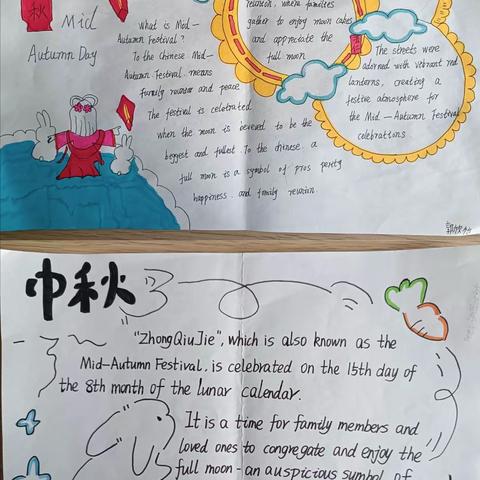 秋
Mid
Autumn Day
What is Mid-
Autumn Festival?
To the Chinese Mid-
Autumn Festival means
Family reunion and peace
The festival is celebrated
when the moon is believed to be the
biggest and fullest. To the chinese, a
full moon is a symbol of pros perity
happiness. and family reunion.
reunion, where families
gather to enjoy moon cakes
and appreciate the
full moon
The streets were
adorned with vibrant red
lanterns, creating a
festive atmosphere for
the Mid-Autumn Festival
celebrations
中秋
"ZhongQiuJie", which is also known as the
Mid-Autumn Festival, is celebrated on the 15th day of
the 8th month of the lunar calendar.
It is a time for family members and
loved ones to congregate and enjoy the
full moon - an auspicious symbol of